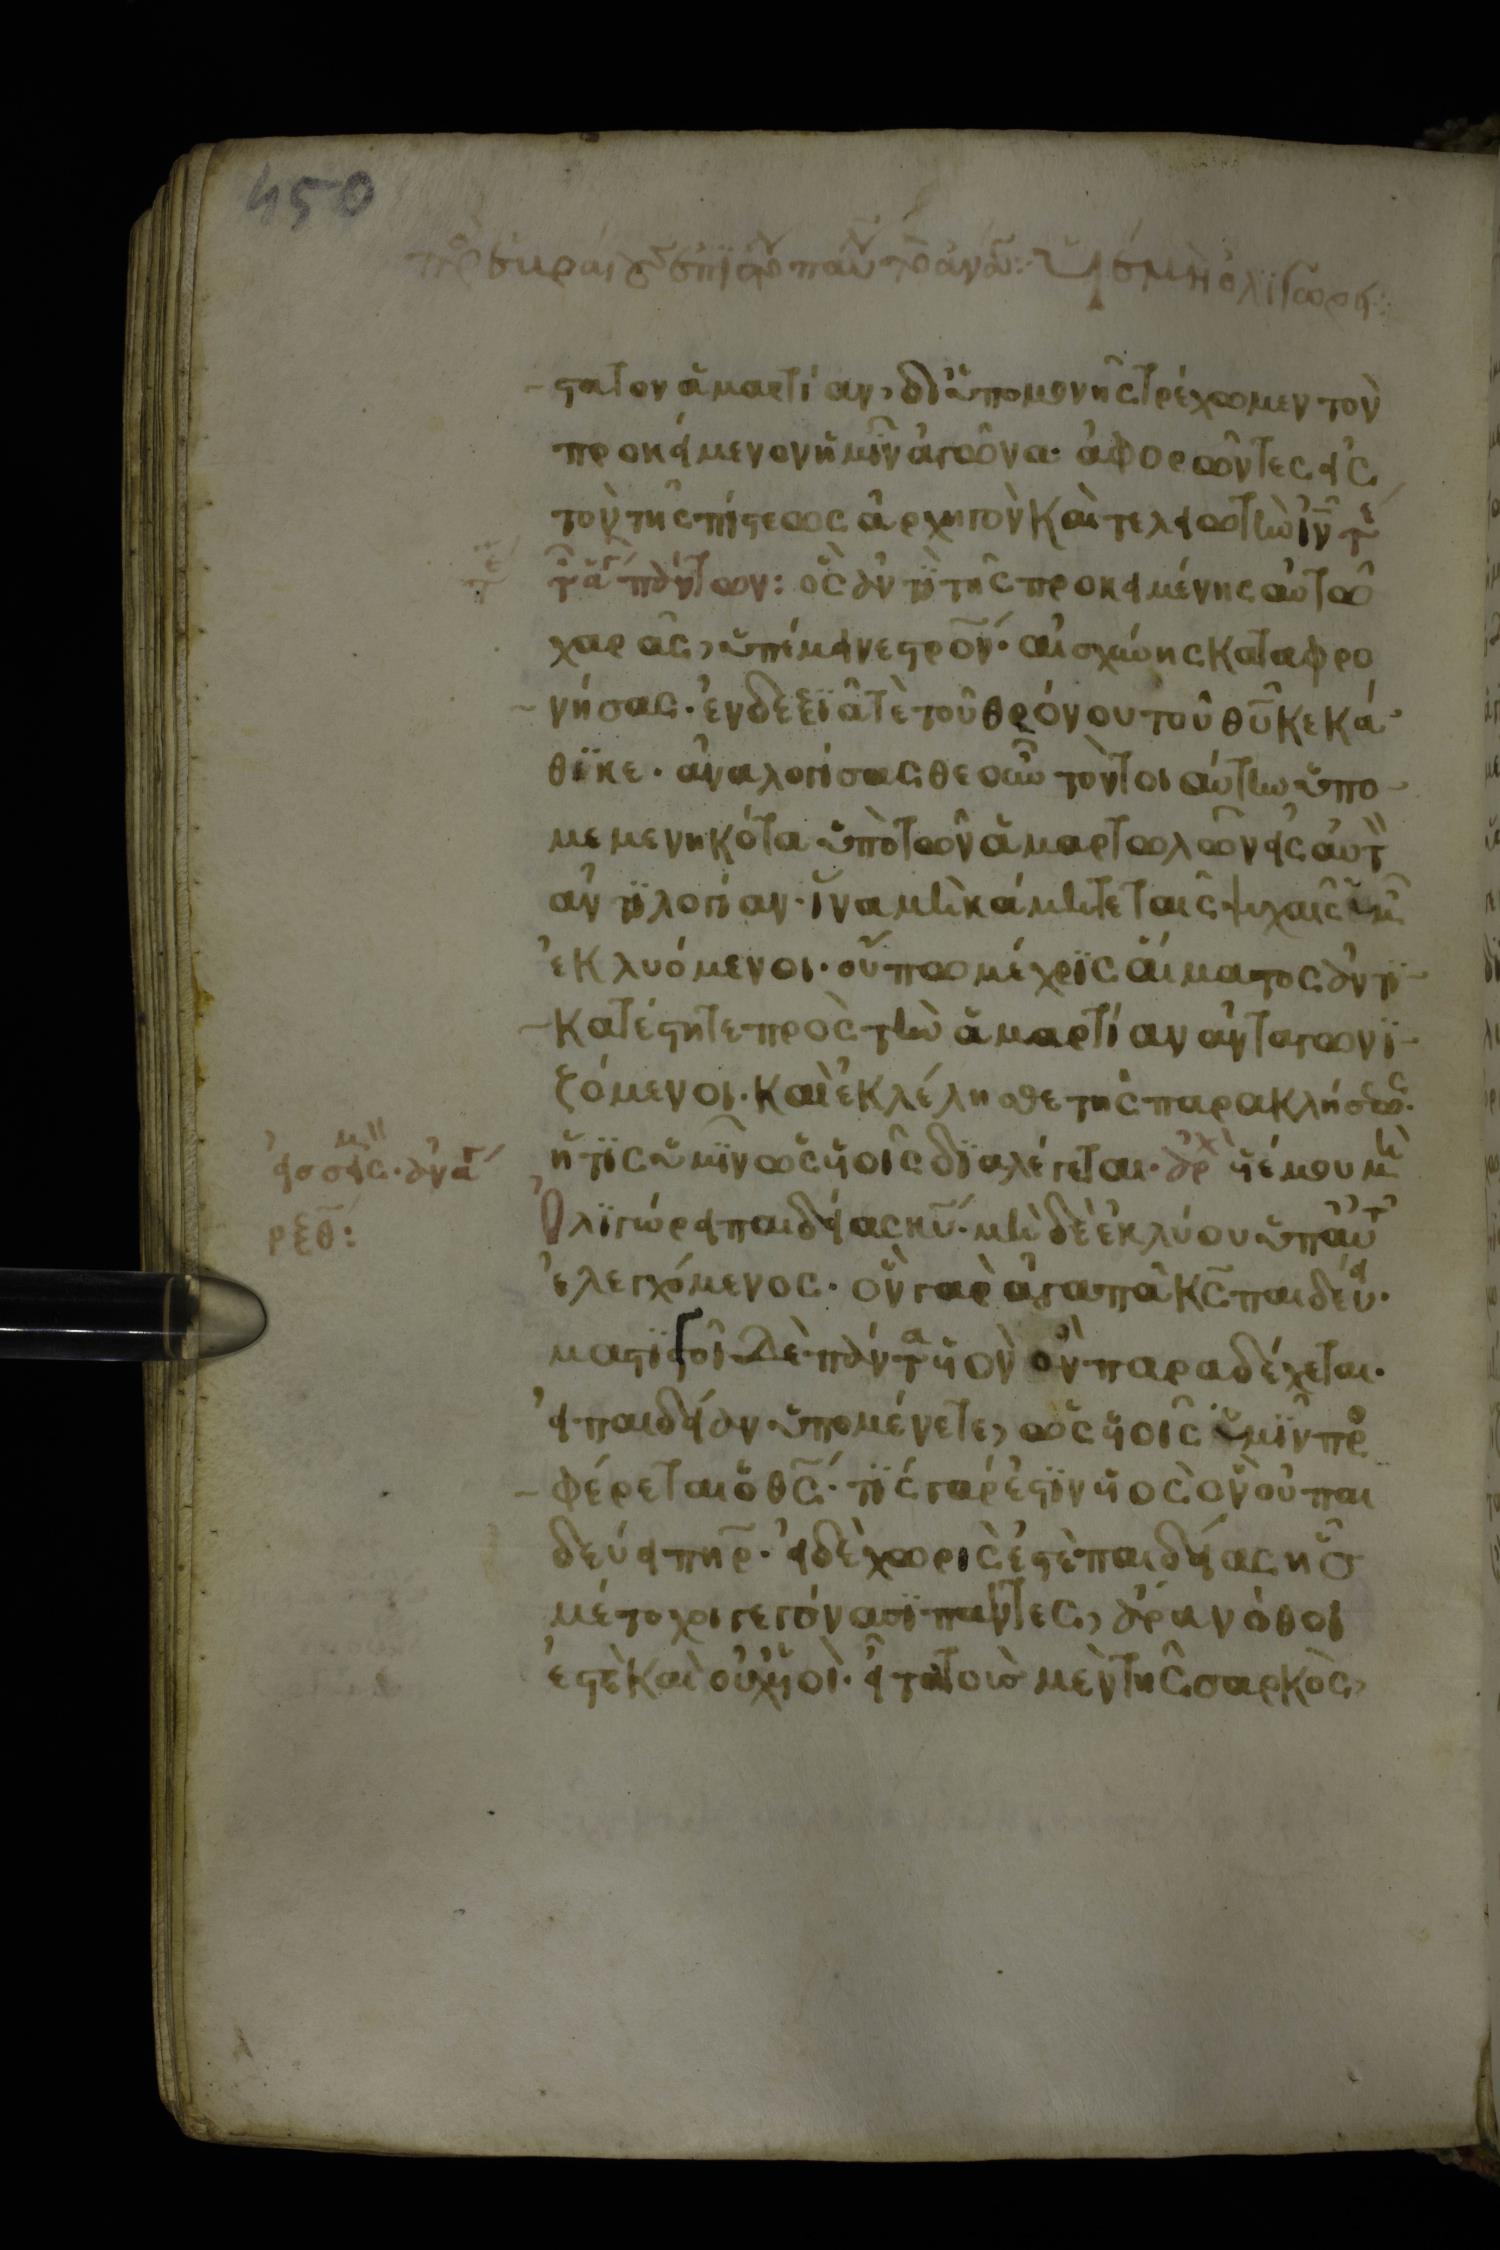 450
στατον ἁμαρτίαν, δι ὑπομονῆς τρέχωμεν τὸν
προκείμενον ἡμῖν ἀγῶνα· ἀφορῶντες εἰς
τὸν τῆς πίστεως ἀρχηγὸν καὶ τελειωτὴν ἰν̅
πάντων: ὃς ἀντὶ τῆς προκειμένης αὐτῶ
χαρᾶς, ὑπέμεινε στρο̅ν· αἰσχύνης καταφρο
νήσας· ἐν δεξϊᾶ τὲ τοῦ θρόνου τοῦ θυ̅ κεκά
θϊκε· ἀναλογίσασθε οὖν τὸν τοιαύτην ὑπο
μεμενηκότα ὑπὸ τῶν ἁμαρτωλῶν εἰς αὐτ
ἀντϊλογίαν· ἵνα μὴ κάμητε ταῖς ψυχαῖς ὑμ
ἐκλυόμενοι· οὔπω μέχρϊς αἵματος ἀντϊ
κατέστητε πρὸς τὴν ἁμαρτίαν ἀνταγωνϊ
ζόμενοι· καὶ ἐκλέλησθε τῆς παρακλήσεως·
ἥτϊς ὑμῖν ὡς υἱοῖς δϊαλέγεται· ἀρχ υἱέ μου μὴ
Ὀλϊγώρει παιδείας κυ̅· μὴ δὲ ἐκλύου ὑπ αὐτ
ἐλεγχόμενος· ὃν γαρ ἀγαπᾶ κς̅ παιδεύει·
μαστϊγοῖ δὲ πάντα υἱὸν ὃν παραδέχεται·
εἰ παιδείαν ὑπομένετε, ὡς υἱοῖς ὑμῖν προ
φέρεται ὁ θς̅· τίς γάρ ἐστϊν υἱὸς ὃν οὐ παι
δεύει πηρ̅· εἰ δὲ χωρίς ἐστὲ παιδείας ἧς
μέτοχοι γεγόνασϊ πάντες, ἄρα νόθοι
ἐστὲ καὶ οὐχ υἱοὶ· εἶτα τοὺς μὲν τῆς σαρκὸς,
ρξθ: